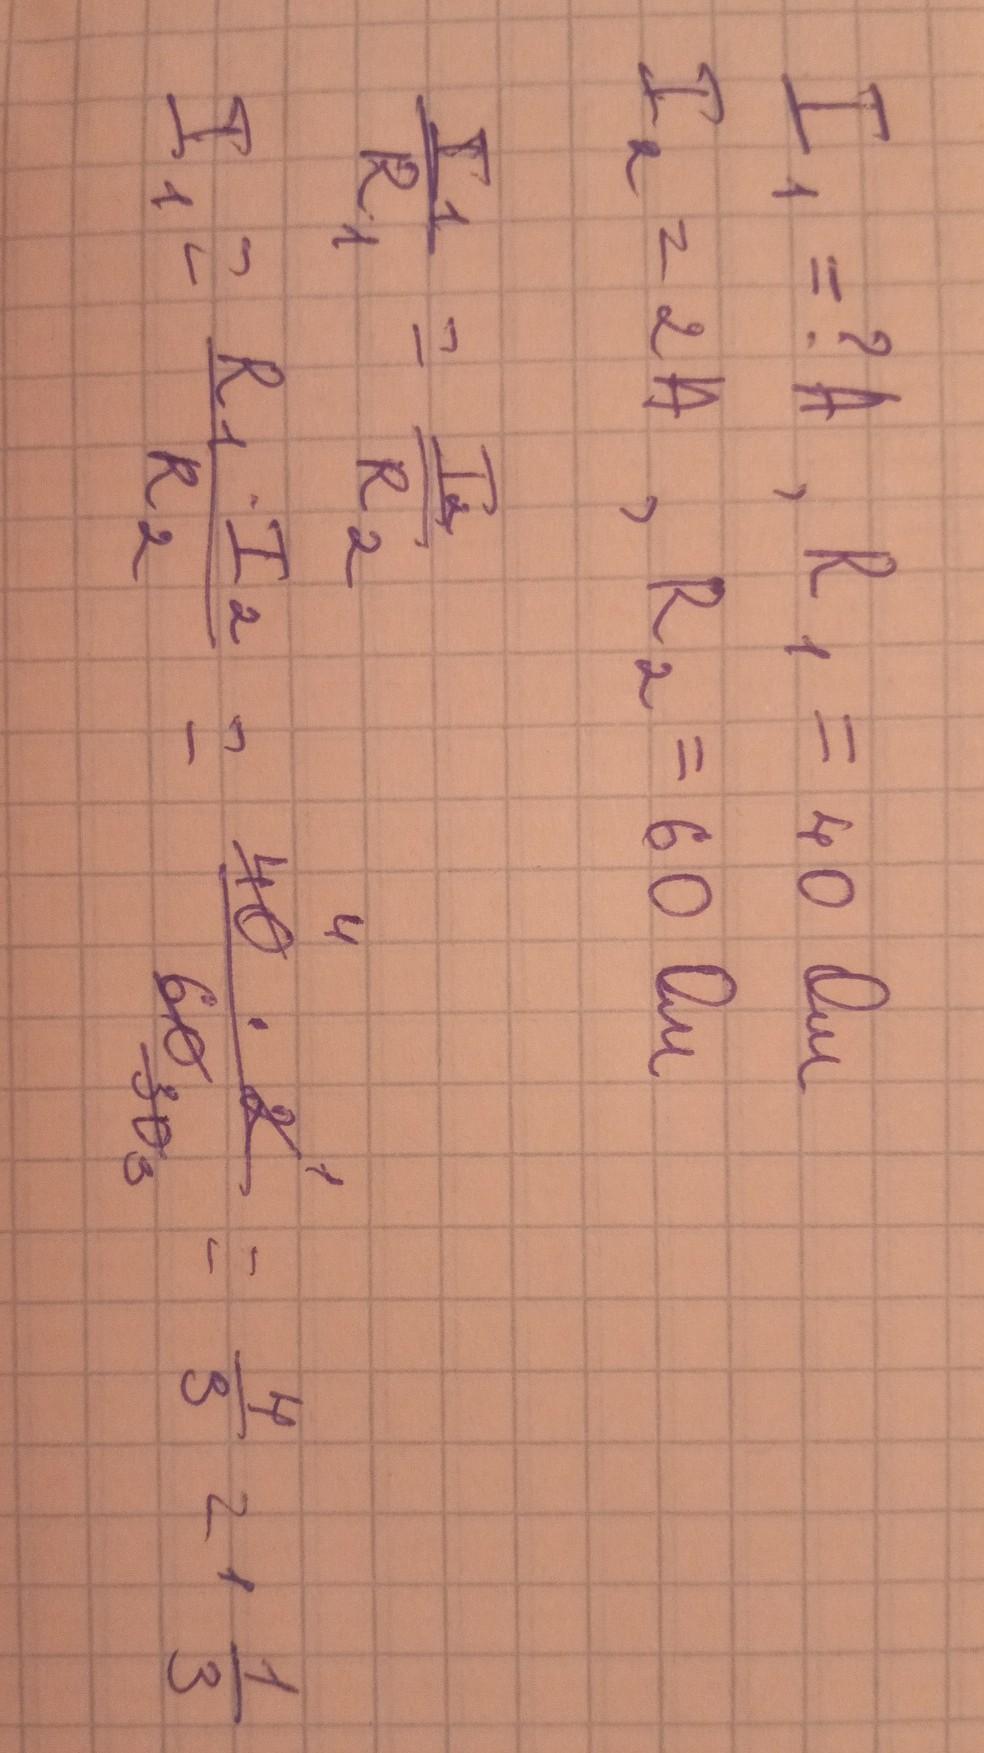 I₁ = ? A, R₁ = 40 Ом
I₂ = 2A, R₂ = 60 Ом
I₁/R₁ = I₂/R₂
I₁ = R₁ · I₂/R₂ = 40 4 · 2 1/60 30 3 = 4/3 = 1 1/3